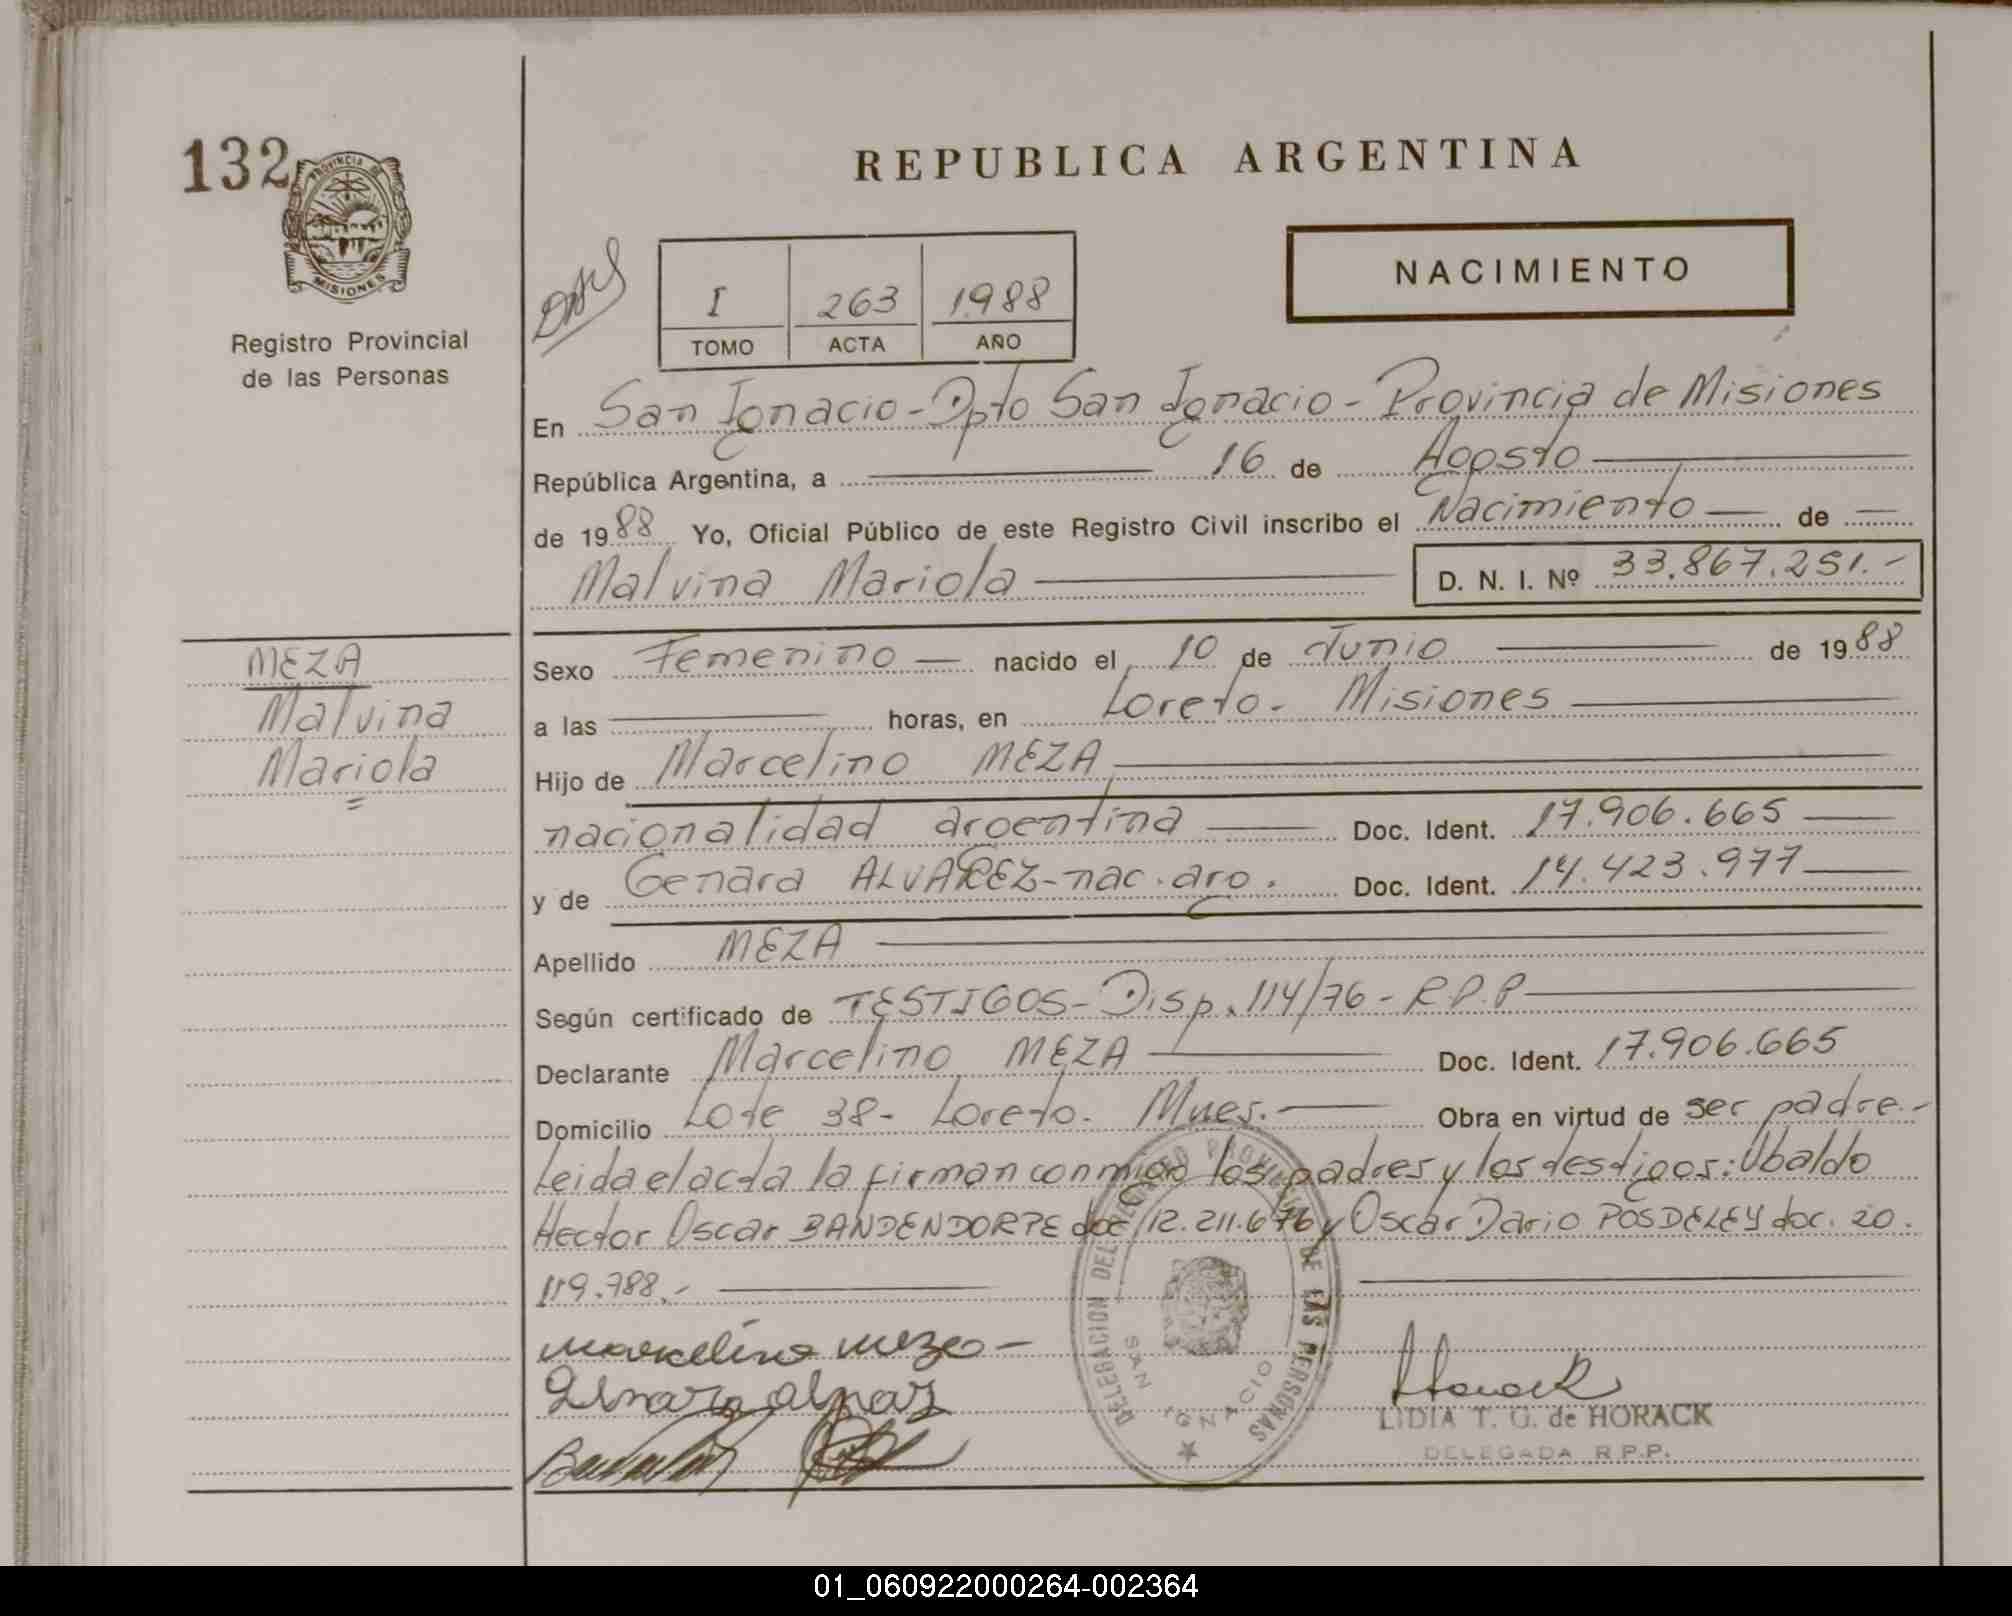 132
PROVINCIA DE
MISIONES
Registro Provincial
de las Personas
REPUBLICA ARGENTINA
NACIMIENTO
I 263 1988
TOMO ACTA AÑO
En San Ignacio - Dpto San Ignacio - Provincia de Misiones
República Argentina, a 16 de Agosto
de 1988 Yo, Oficial Público de este Registro Civil inscribo el Nacimiento de
Malvina Mariola D. N. I. Nº 33.867.251.-
MEZA
Malvina
Mariola
Sexo Femenino nacido el 10 de Junio de 1988
a las horas, en Loreto - Misiones
Hijo de Marcelino MEZA
nacionalidad argentina Doc. Ident. 17.906.665
y de Genara ALVAREZ - nac. arg. Doc. Ident. 14.423.977
Apellido MEZA
Según certificado de TESTIGOS - Disp. 114/76 - R.P.P
Declarante Marcelino MEZA Doc. Ident. 17.906.665
Domicilio Lote 38 - Loreto - Mnes. Obra en virtud de ser padre.-
Leida el acta la firman conmigo los padres y los testigos: Ubaldo
Hector Oscar BANDENDORPE doc 12.211.676 y Oscar Dario POSDELEY doc. 20.
119.788.-
marcelino meza
DELEGACION DEL REGISTRO PROVINCIAL DE LAS PERSONAS
SAN IGNACIO
Horack
LIDIA T. G. de HORACK
DELEGADA R.P.P.
01_060922000264-002364